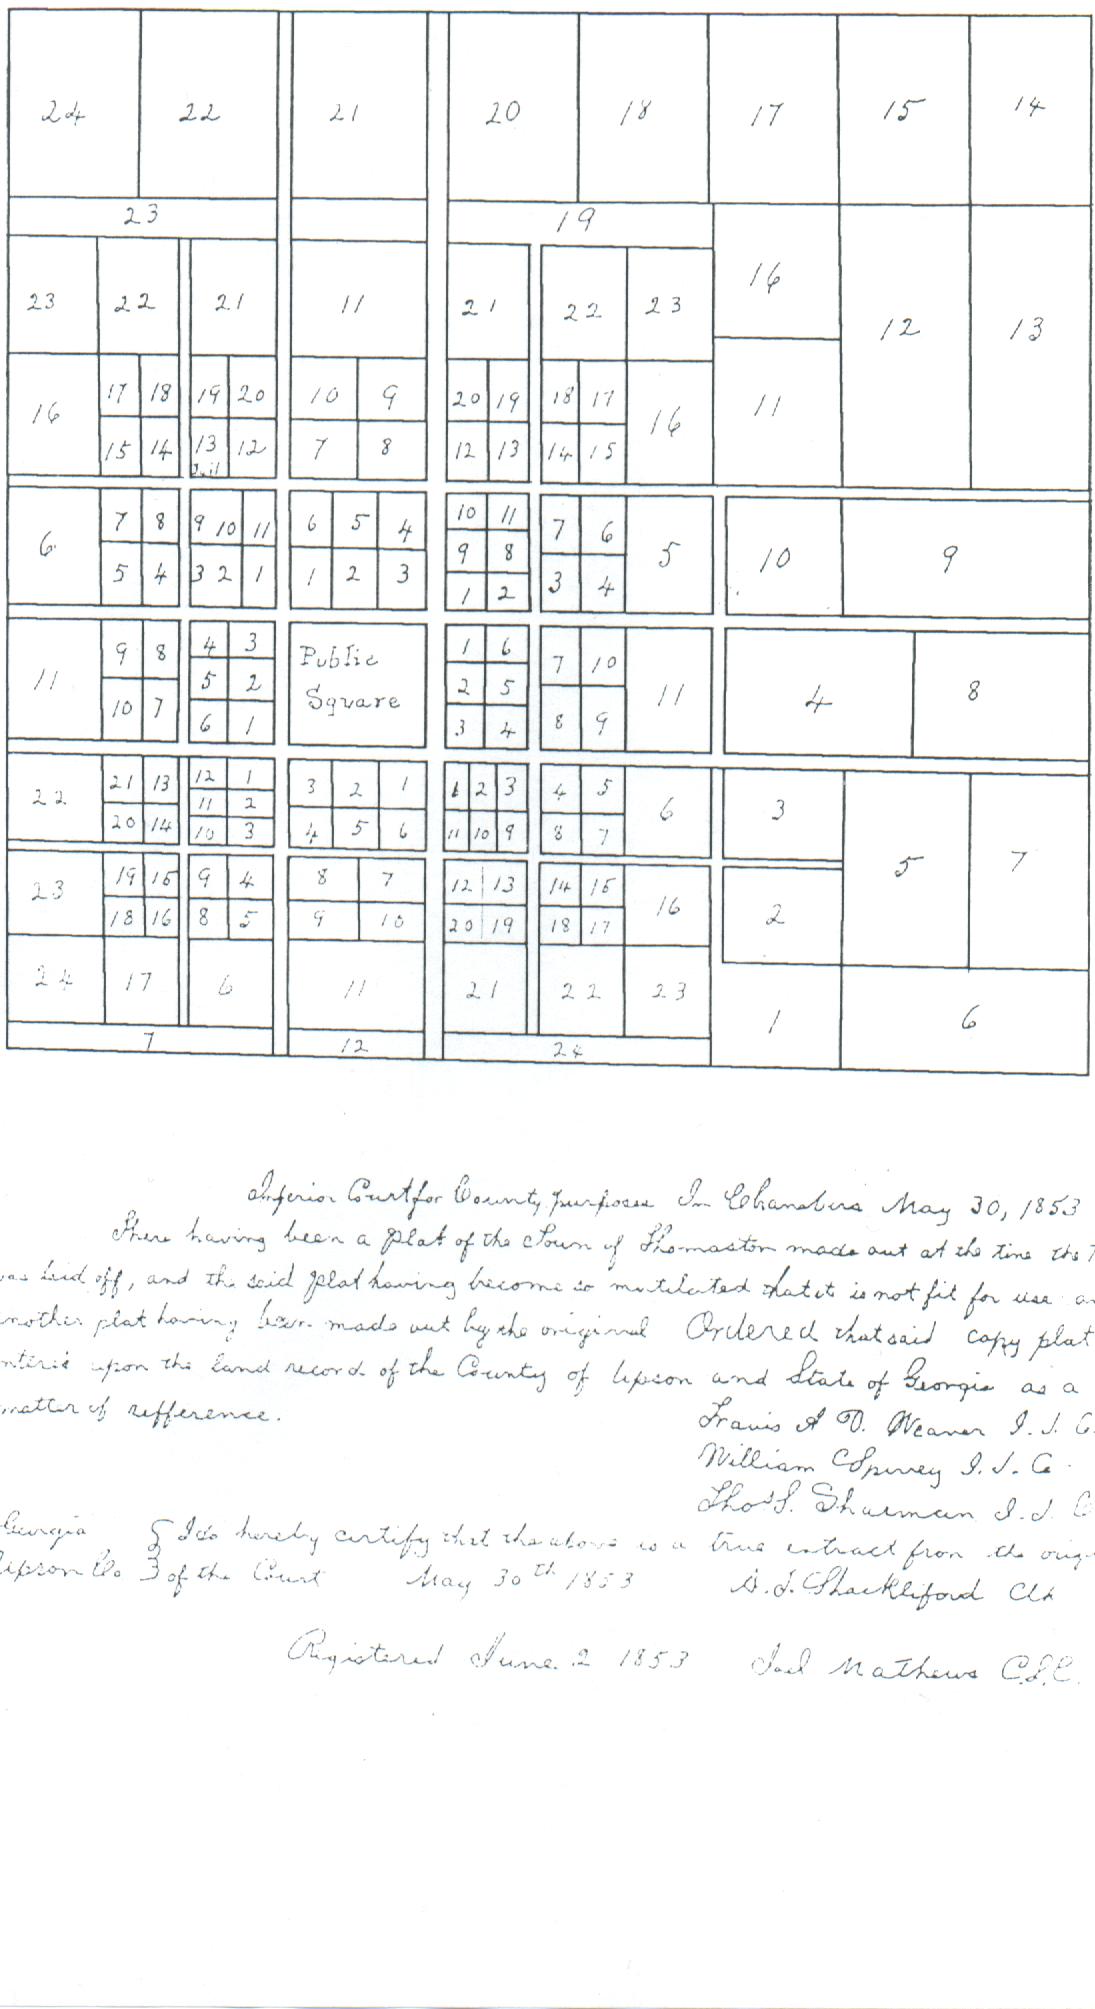 24 22 21 20 18 17 15 14
23 19
23 22 21 11 21 22 23 16 12 13
16 17 18 19 20 10 9 20 19 18 17 16 11
15 14 13 12 7 8 12 13 14 15
Jail
6 7 8 9 10 11 6 5 4 10 11 7 6 5 10 9
9 8
5 4 3 2 1 1 2 3 1 2 3 4
11 9 8 4 3 Public 1 6 7 10 11 4 8
5 2 Square 2 5
10 7 6 1 3 4 8 9
22 21 13 12 1 3 2 1 1 2 3 4 5 6 3 5 7
11 2
20 14 10 3 4 5 6 11 10 9 8 7
23 19 15 9 4 8 7 12 13 14 15 16 2
18 16 8 5 9 10 20 19 18 17
24 17 6 11 21 22 23 1 6
7 12 24
Inferior Court for County purposes In Chambers May 30, 1853
There having been a plat of the Town of Thomaston made out at the time the T
was laid off, and the said plat having become so mutilated that it is not fit for use a
nother plat having been made out by the original Ordered that said copy plat
upon the land record of the County of Upson and State of Georgia as a
matter of refference.
Travis A D. Weaver I. J. C.
William Spivey I. J. C.
Thos S. Sharman I. J. C
Georgia I do hereby certify that the above is a true extract from the orig
Upson Co of the Court May 30th 1853 Shackliford Clk
Registered June 2 1853 Joel Mathews C.S.C.